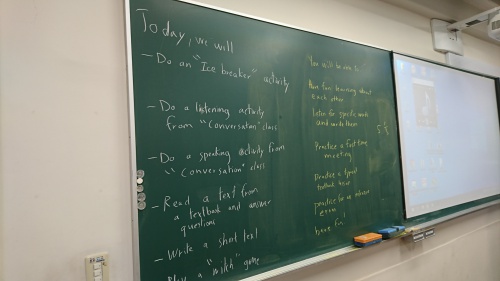 Today, we will
- Do an "Ice breaker" activity
- Do a listening activity
from "Conversation" class
- Do a speaking activity from
"Conversation" class
- Read a text from
a textbook and answer
questions
- Write a short text
Play a "witch" game
You will be able to
Have fun learning about
each other
Listen for specific words
and write them
Practice a first time
meeting
Practice a typical
textbook
practice for an
exam
have fun!